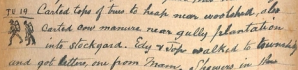 TU 19 Carted tops of trees to heap near woolshed, also
carted cow manure near gully plantation
into stockyard. Edy & Pope walked to township
and got letters, one from Mam, Showers in